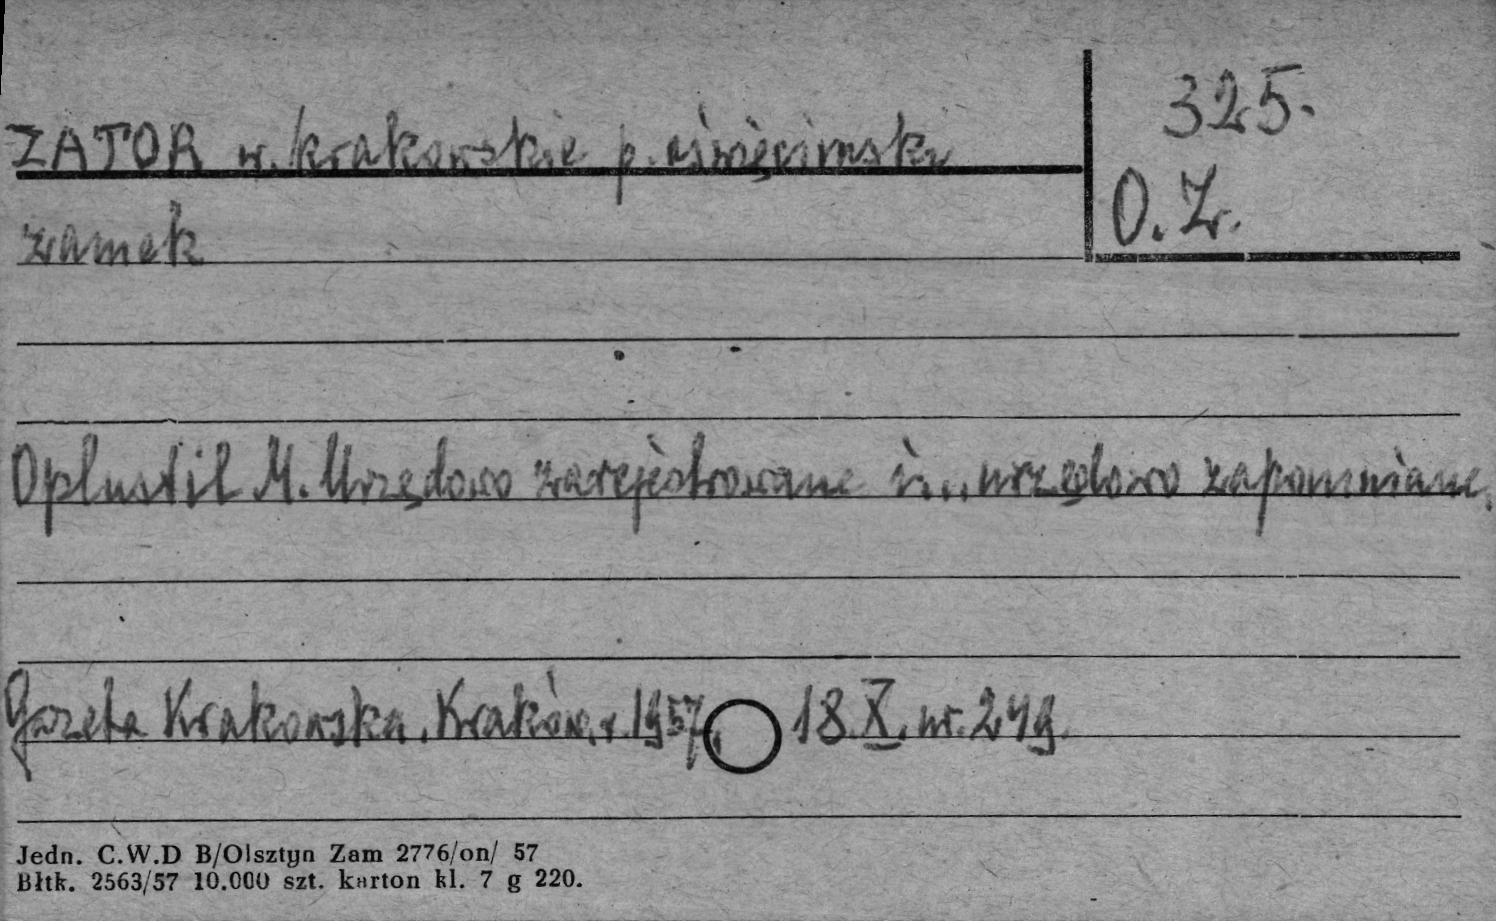 ZATOR w. krakowskie p. oświęcimski
325.
O. Z.
zamek
Oplustil M. Urzędowo zarejestrowane i... urzędowo zapomniane.
Gazeta Krakowska. Kraków, r. 1957, 18.X. nr. 249.
Jedn. C.W.D B/Olsztyn Zam 2776/on/ 57
Błtk. 2563/57 10.000 szt. karton kl. 7 g 220.